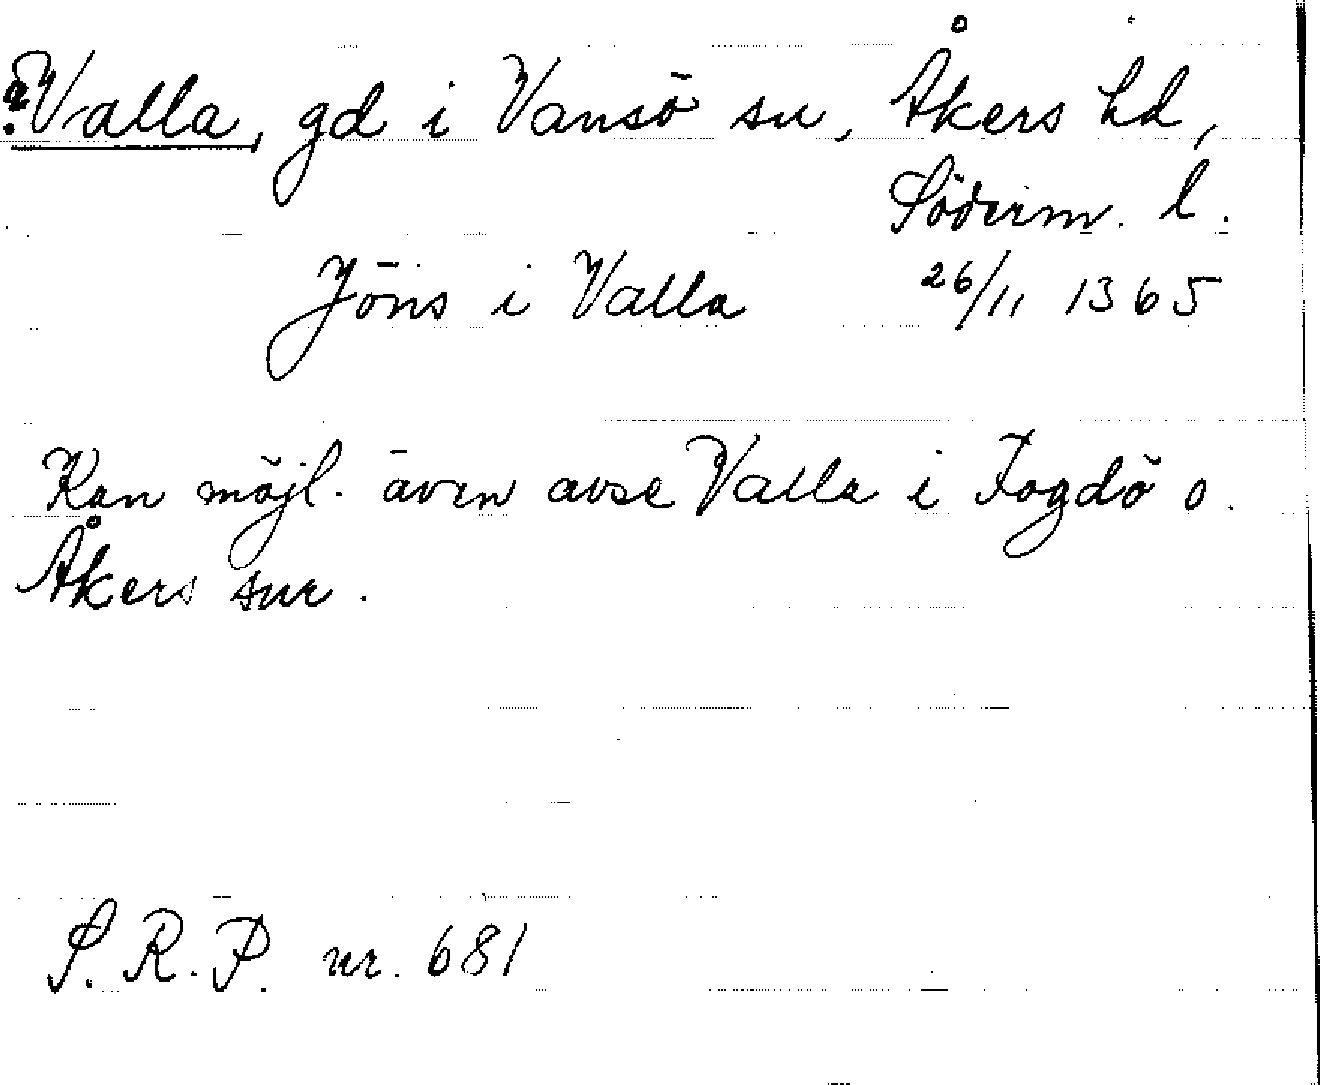 ?Valla, gd i Vansö sn, Åkers hd,
Söderm. l.
Jöns i Valla 26/11 1365
Kan möjl. även avse Valla i Fogdö o.
Åkers snr.
S.R.P. nr. 681